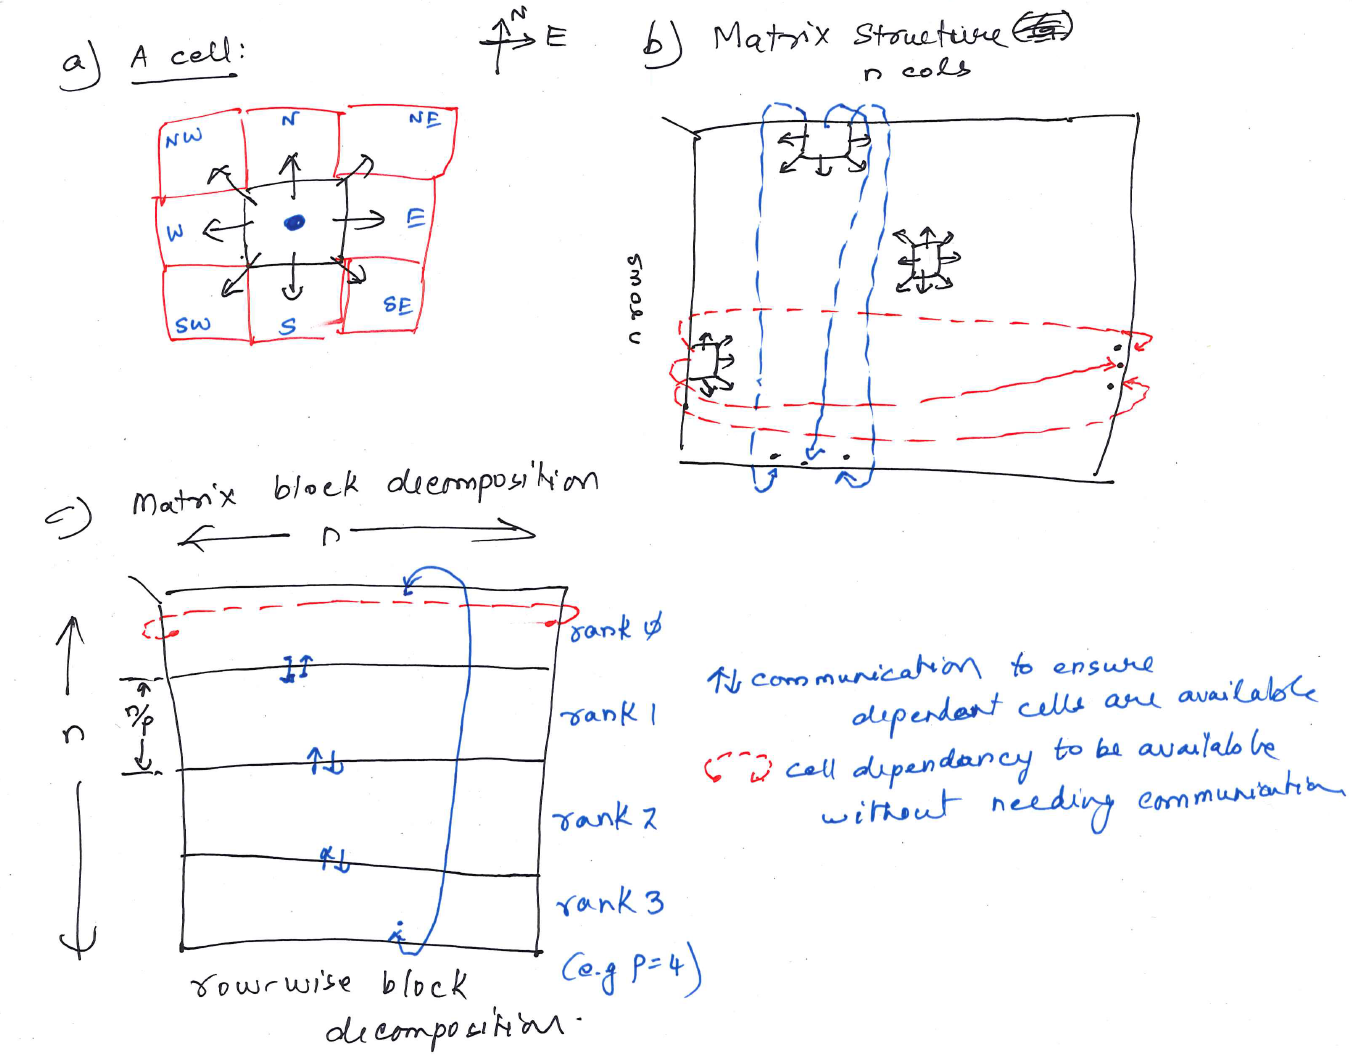 a) A cell:
N
E
NW N NE
W E
SW S SE
b) Matrix Structure
n cols
n rows
c) Matrix block decomposition
n
n
n/p
rank 0
rank 1
rank 2
rank 3
(e.g P=4)
row-wise block
decomposition.
↑↓ communication to ensure
dependent cells are available
cell dependancy to be available
without needing communication